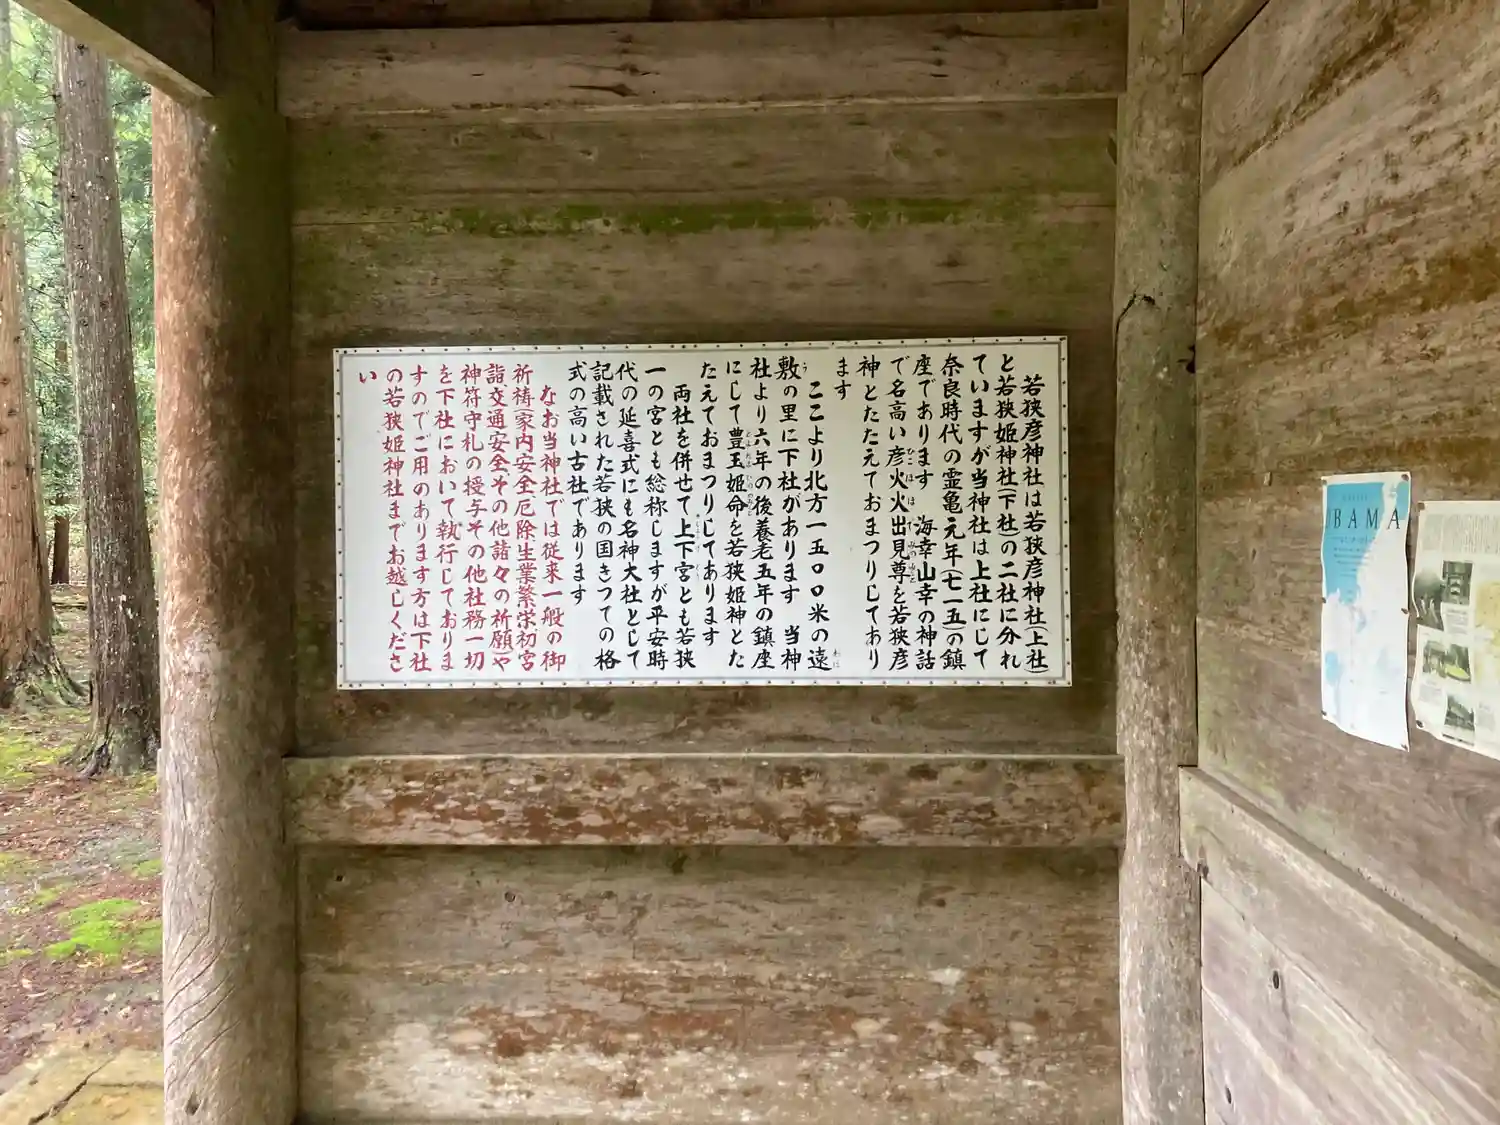 若狭彦神社は若狭彦神社(上社)
と若狭姫神社(下社)の二社に分れ
ていますが当神社は上社にして
奈良時代の霊亀元年(七一五)の鎮
座であります　海幸山幸の神話
で名高い彦火火出見尊を若狭彦
神とたたえておまつりしてあり
ます
ここより北方一五〇〇米の遠
敷の里に下社があります　当神
社より六年の後養老五年の鎮座
にして豊玉姫命を若狭姫神とた
たえておまつりしてあります
両社を併せて上下宮とも若狭
一の宮とも総称しますが平安時
代の延喜式にも名神大社として
記載された若狭の国きつての格
式の高い古社であります
なお当神社では従来一般の御
祈祷(家内安全厄除生業繁栄初宮
詣交通安全その他諸々の祈願)や
神符守札の授与その他社務一切
を下社において執行しておりま
すのでご用のあります方は下社
の若狭姫神社までお越しくださ
い
BAMA